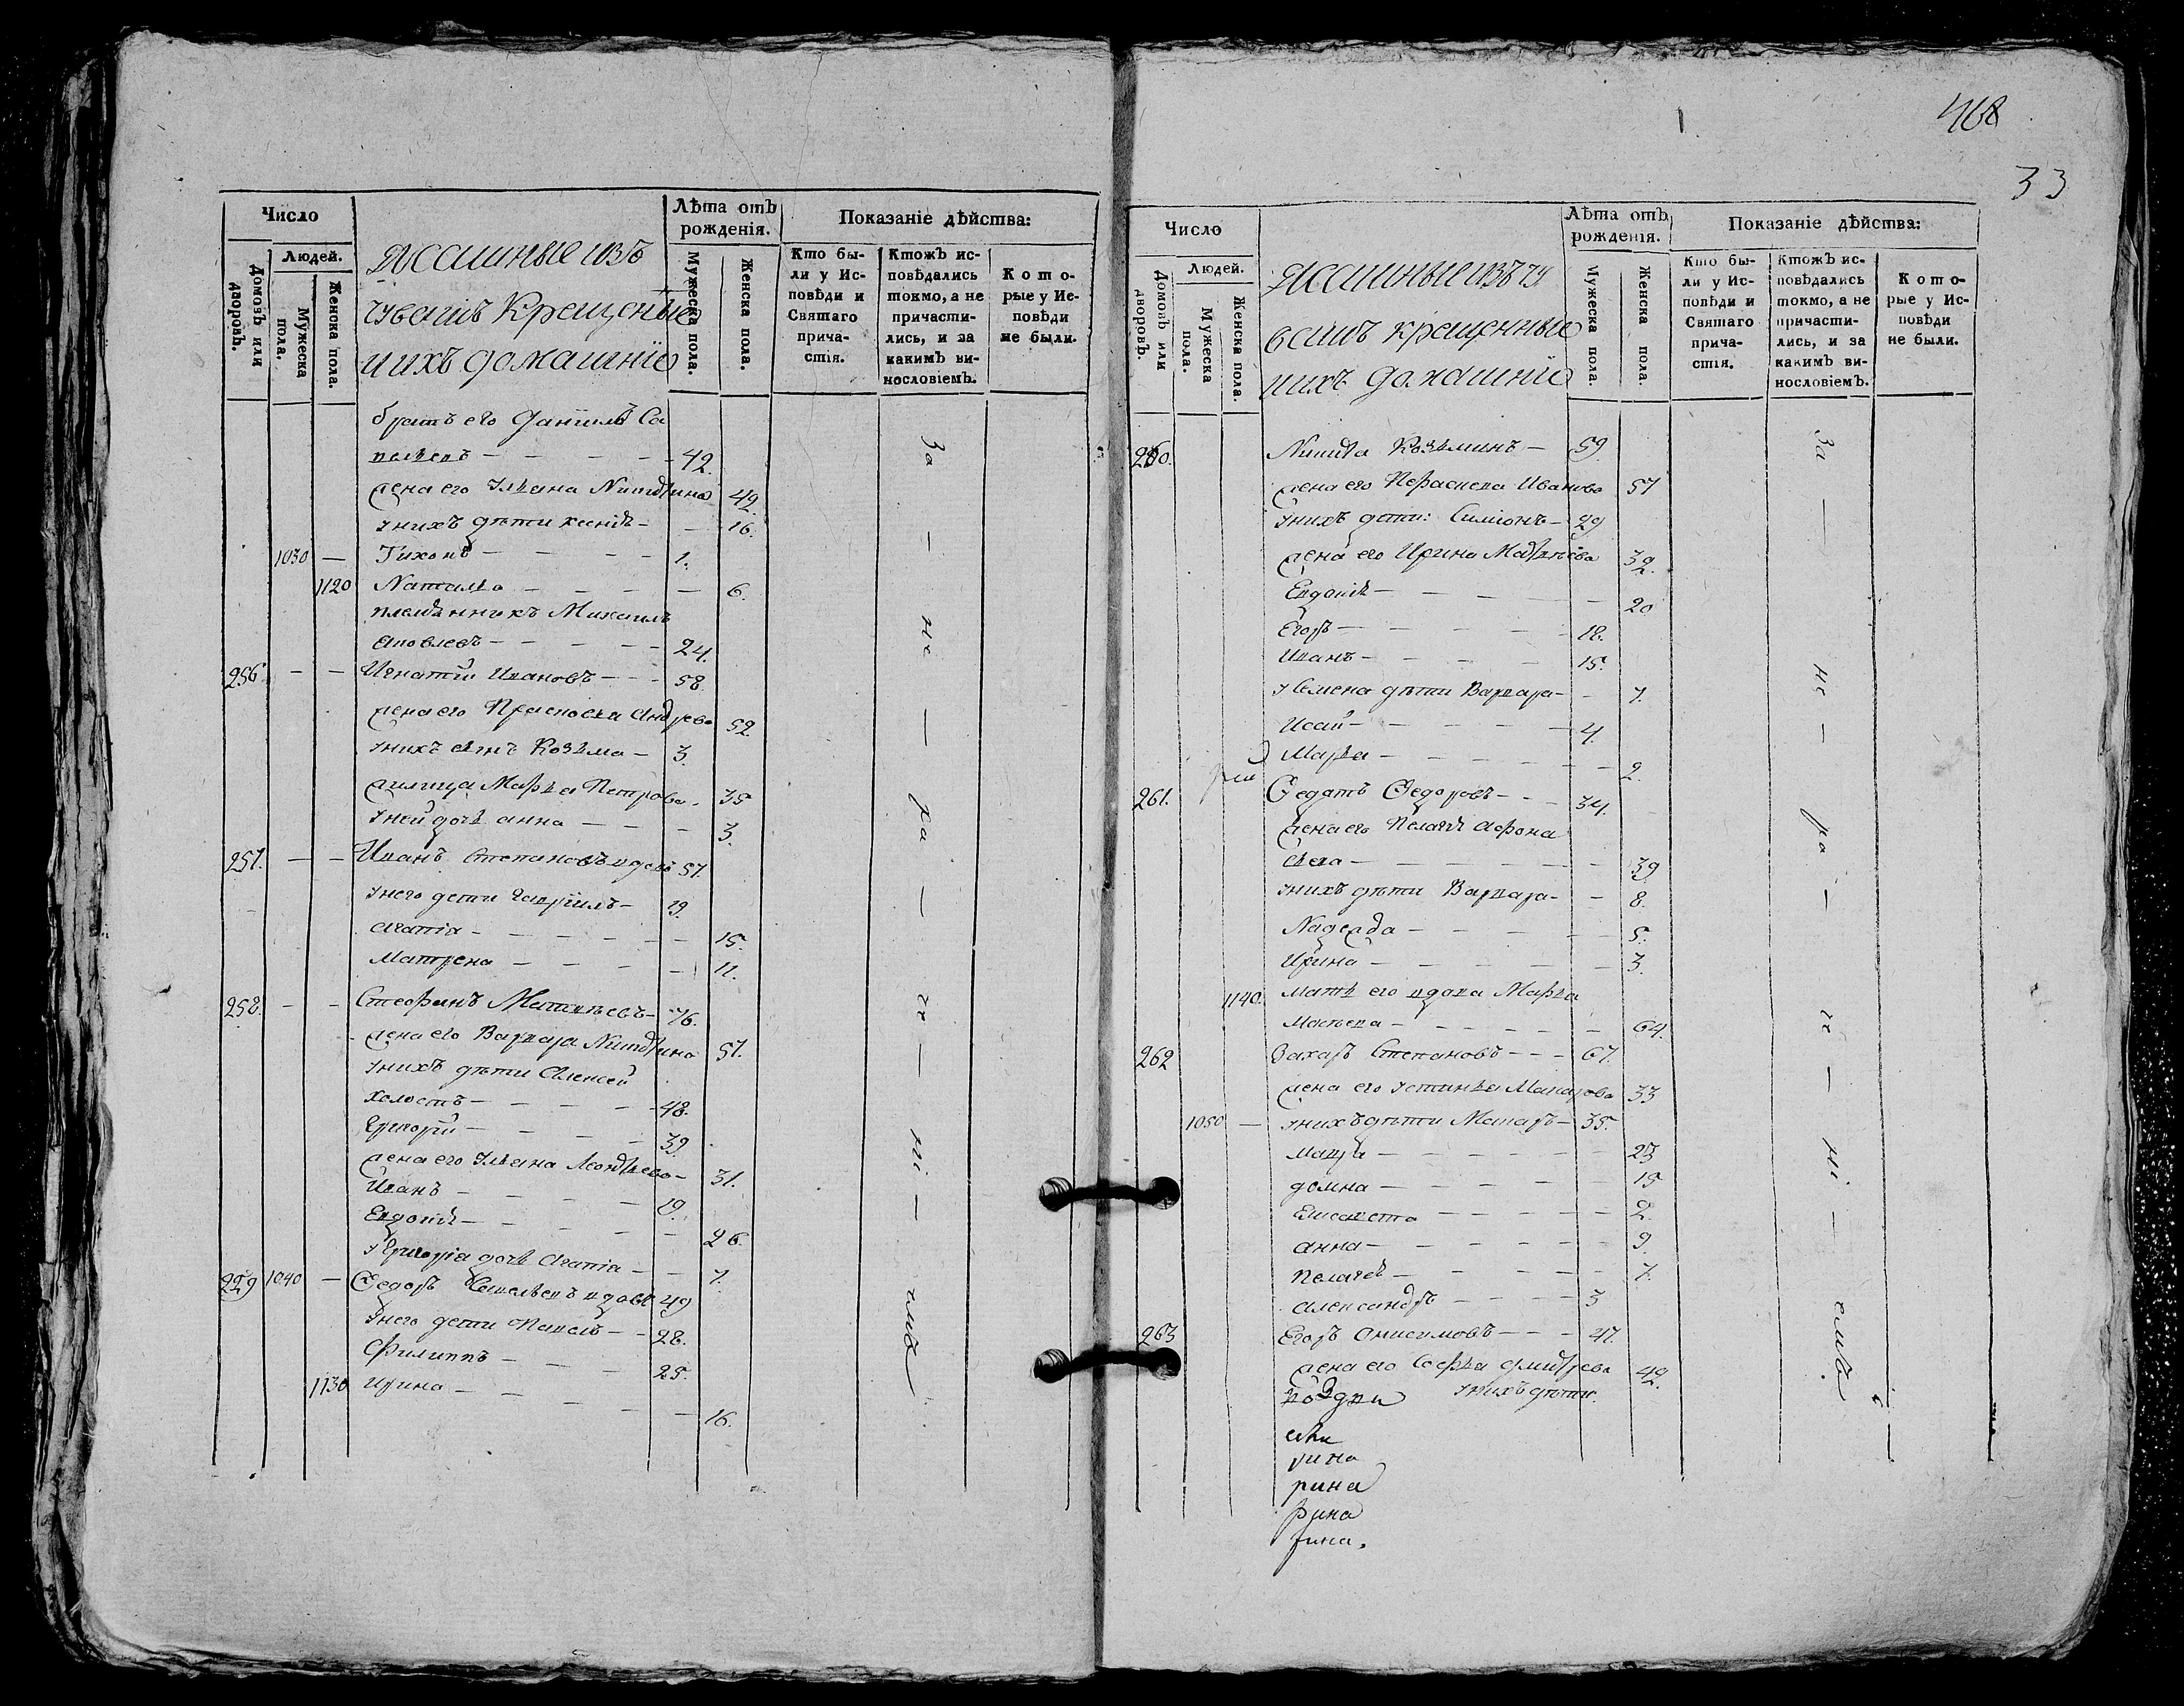 Число
Людей.
Домовъ или дворовъ.
Мужеска пола.
Женска пола.
ясашные изъ
чувашъ крещеные
и ихъ домашніе
Лѣта отъ рожденія.
Мужеска пола.
Женска пола.
Показаніе дѣйства:
Кто были у Исповѣди и Святаго причастія.
Ктожъ исповѣдались токмо, а не причастились, и за какимъ винословіемъ.
Которые у Исповѣди не были.
братъ его Данiилъ Са
вельевъ — 42
жена его Ульяна Никитина 42.
у нихъ дѣти Ксенія — 16.
1030 — Тихонъ — 1.
1120 Наталья — 6.
племянникъ Михаилъ
Яковлевъ — 24.
256. — — Игнатій Ивановъ — 58.
жена его Прасковья Андреева 52.
у нихъ сынъ Козьма — 3.
Марѳа Петрова 35
у ней дочь анна — 3.
257. — — Иванъ Степановъ вдовъ 57.
у него дети Гавріилъ — 19.
Агапія — 15.
Матрена — 11.
258. — — Стефанъ Матвѣевъ — 76.
жена его Варвара Никитина 57.
у нихъ дѣти Алексей
холостъ — 48.
Григорій — 39.
жена его Ульяна Леонтьева — 31.
Иванъ — 19.
Евдокія — 26.
у Григорія дочь Агапія — 7.
259 1040 — Ѳедоръ Савельевъ вдовъ 49
у него дети Павелъ — 28.
Филиппъ — 25.
1130 Ирина — 16.
За — не — ра — че — ні — емъ
468
33
Число
Людей.
Домовъ или дворовъ.
Мужеска пола.
Женска пола.
ясашные изъ чу
вашъ крещенные
и ихъ домашніе
Лѣта отъ рожденія.
Мужеска пола.
Женска пола.
Показаніе дѣйства:
Кто были у Исповѣди и Святаго причастія.
Ктожъ исповѣдались токмо, а не причастились, и за какимъ винословіемъ.
Которые у Исповѣди не были.
260. Никита Козьминъ — 59.
жена его Параскева Иванова 57
у нихъ дети: Симіонъ — 29
жена его Ирина Матвѣева 32.
Евдокія — 20
Егоръ — 18.
Иванъ — 15.
у Семена дѣти Варвара — 7.
Исай — 4.
Марѳа — 2.
261. Ѳедотъ Ѳедоровъ — 34.
жена его Пелагія Афона
сьева — 39.
у нихъ дѣти Варвара — 8.
Надежда — 5.
Ирина — 3.
1140. мать его вдова Марѳа
64.
262 Захаръ Степановъ — 67.
жена его Устинья Макарова 33
1050 — у нихъ дѣти Макаръ — 35.
Мавра — 23
домна — 15
Елисавета — 2.
анна — 9.
Пелагея — 7.
Александръ — 3
263 Егоръ Онисимовъ — 47.
жена его Софья Дмитрева 42.
у нихъ дѣти.
рина
рина
рина
рина.
За — не — ра — че — ні — емъ.